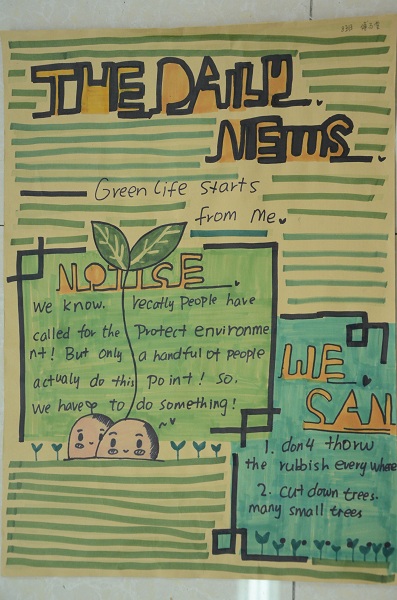 THE DAILY
NEWS
Green Life starts
from Me
NOTISE
We know. recatly People have
called for the Protect environme
nt! But only a handful of people
actualy do this Point! so.
We have to do something!
WE
SAN
1. don4 thorw
the rubbish every where
2. cut down trees.
many small trees